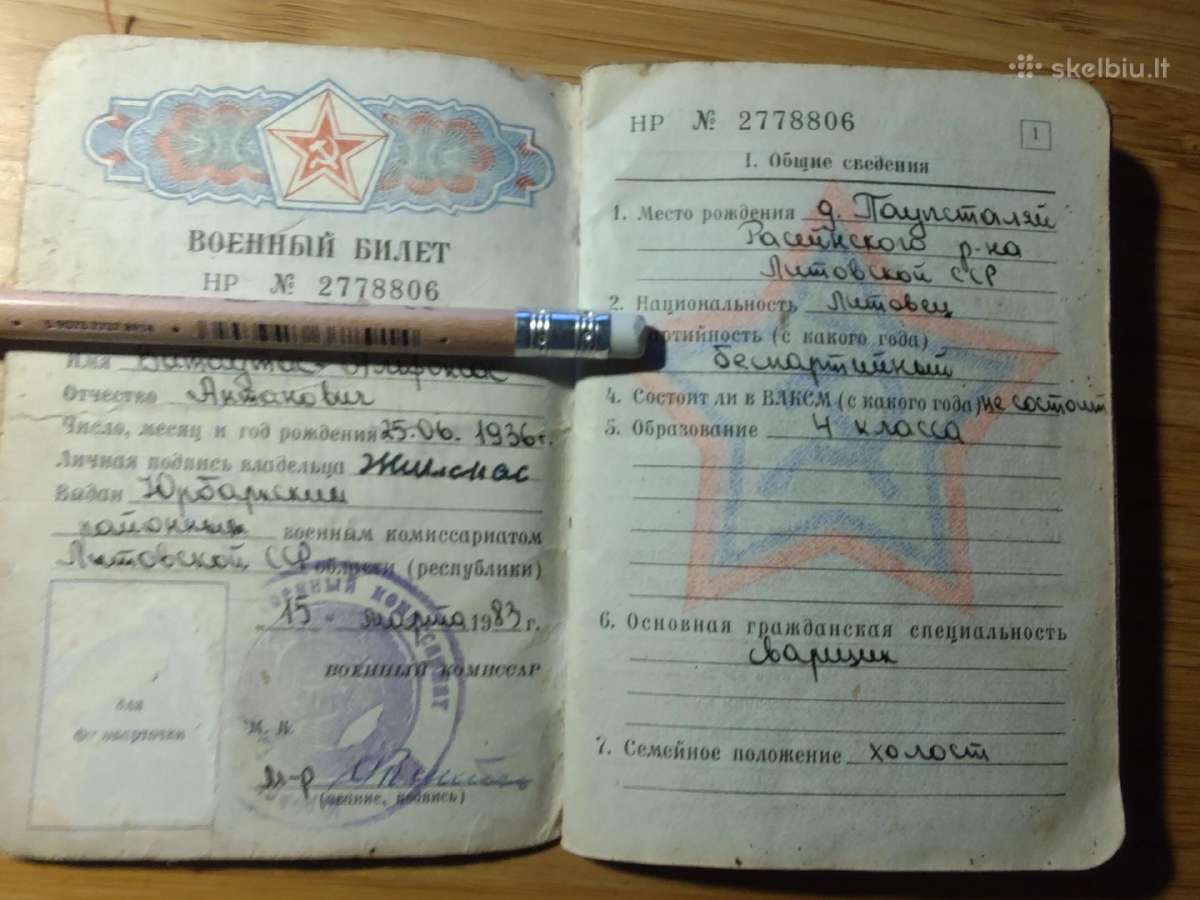 skelbiu.lt
ВОЕННЫЙ БИЛЕТ
НР № 2778806
Имя
Отчество Антанович
Число, месяц и год рождения 25.06.1936 г.
Личная подпись владельца
Выдан Юрбаркским
районным военным комиссариатом
Литовской ССР области (республики)
15 марта 1983 г.
ВОЕННЫЙ КОМИССАР
для
фотокарточки
М. П.
м-р
(звание, подпись)
ВОЕННЫЙ КОМИССАРИАТ
НР № 2778806
1
I. Общие сведения
1. Место рождения д.
Расейнского р-на
Литовской ССР
2. Национальность Литовец
артийность (с какого года)
беспартийный
4. Состоит ли в ВЛКСМ (с какого года) не состоит
5. Образование 4 класса
6. Основная гражданская специальность
сварщик
7. Семейное положение холост